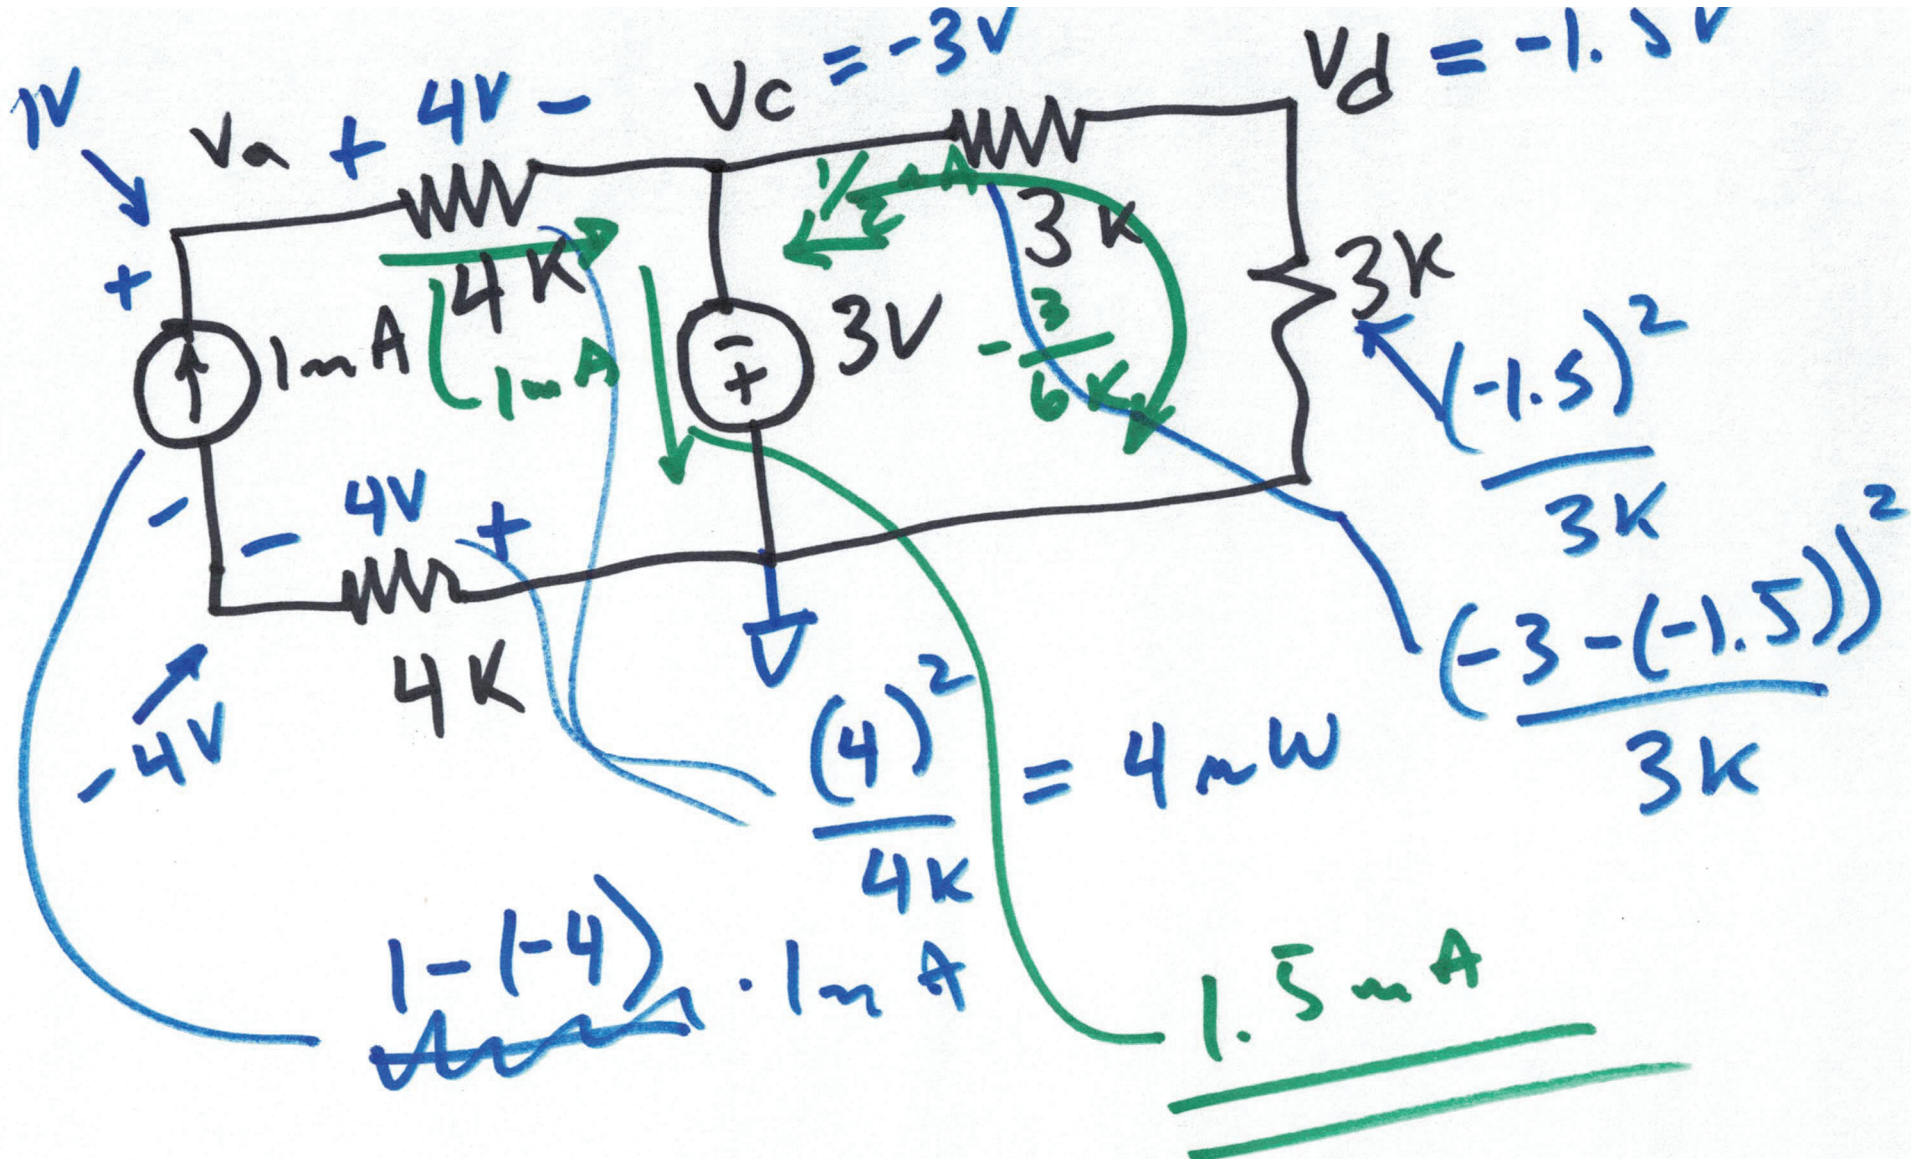 1V
Va + 4V -
Vc = -3V
Vd = -1.5V
+
4K
1mA
1/2 mA
3K
3K
1mA
-
+
3V
- 3/6K
(-1.5)²/3K
-
- 4V +
4K
-4V
(-3-(-1.5))²/3K
(4)²/4K = 4mW
1-(-4) · 1mA
1.5mA